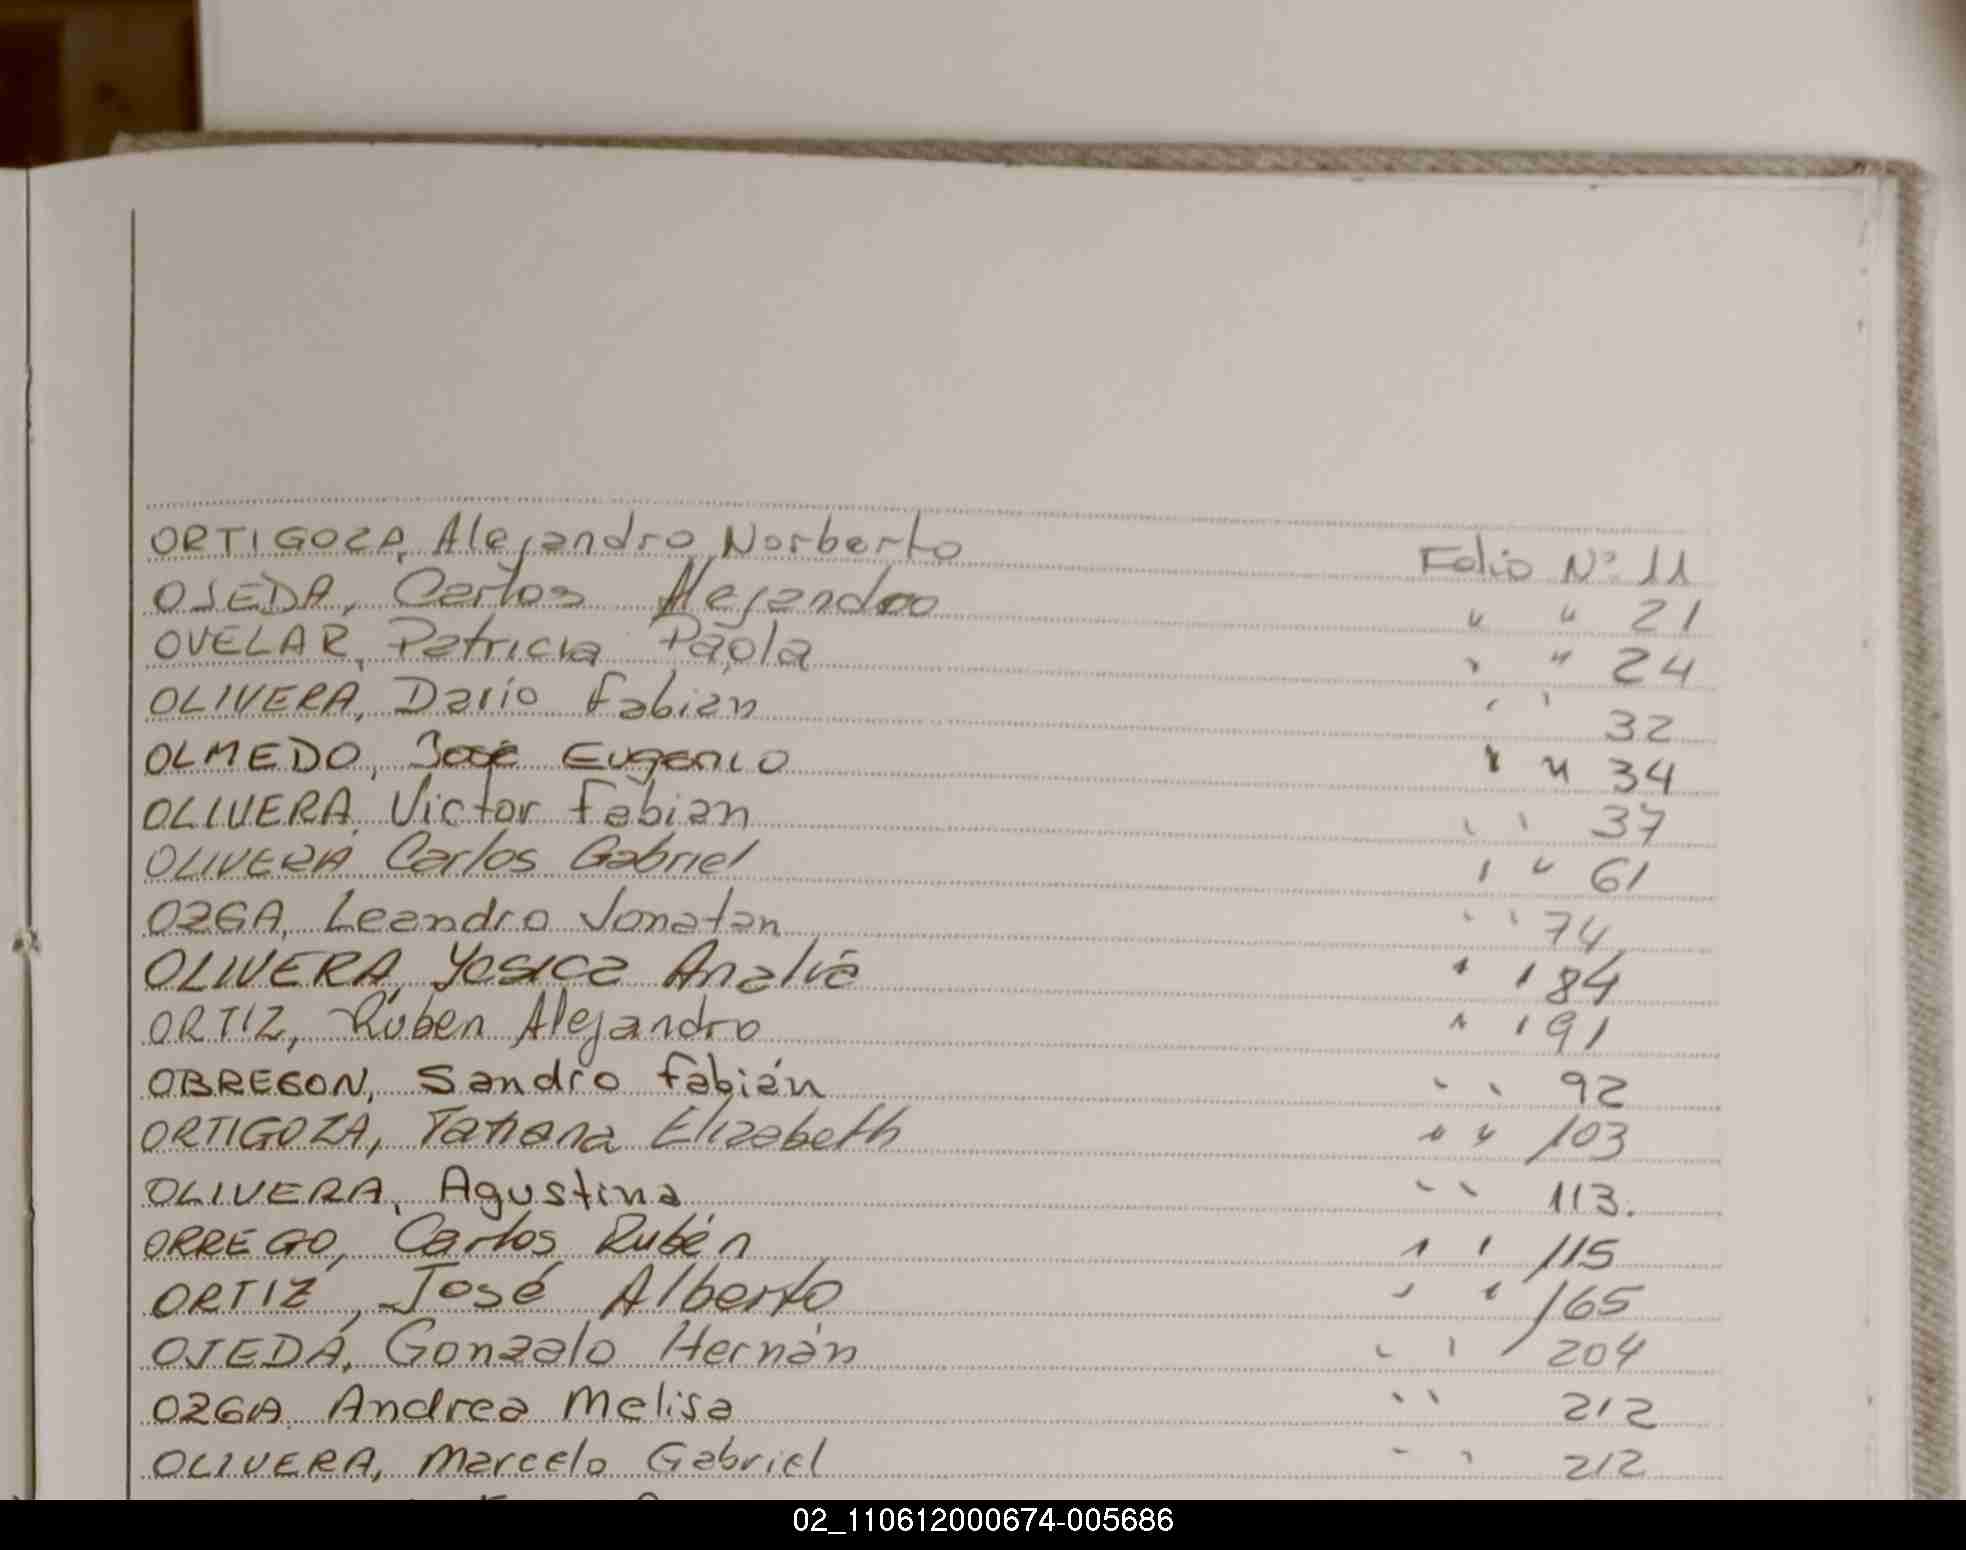 ORTIGOZA, Alejandro Norberto Folio Nº 11
OJEDA, Carlos Alejandro " " 21
OVELAR, Patricia Paola " " 24
OLIVERA, Darío Fabian " " 32
OLMEDO, José Eugenio " " 34
OLIVERA, Victor Fabian " " 37
OLIVERA Carlos Gabriel " " 61
OZGA, Leandro Jonatan " " 74
OLIVERA, Yesica Analía " " 84
ORTIZ, Rúben Alejandro " " 91
OBREGON, Sandro Fabián " " 92
ORTIGOZA, Tatiana Elizabeth " " 103
OLIVERA, Agustina " " 113.
ORREGO, Carlos Rubén " " 115
ORTIZ, José Alberto " " 165
OJEDA, Gonzalo Hernán " " 204
OZGA, Andrea Melisa " " 212
OLIVERA, Marcelo Gabriel " " 212
02_110612000674-005686